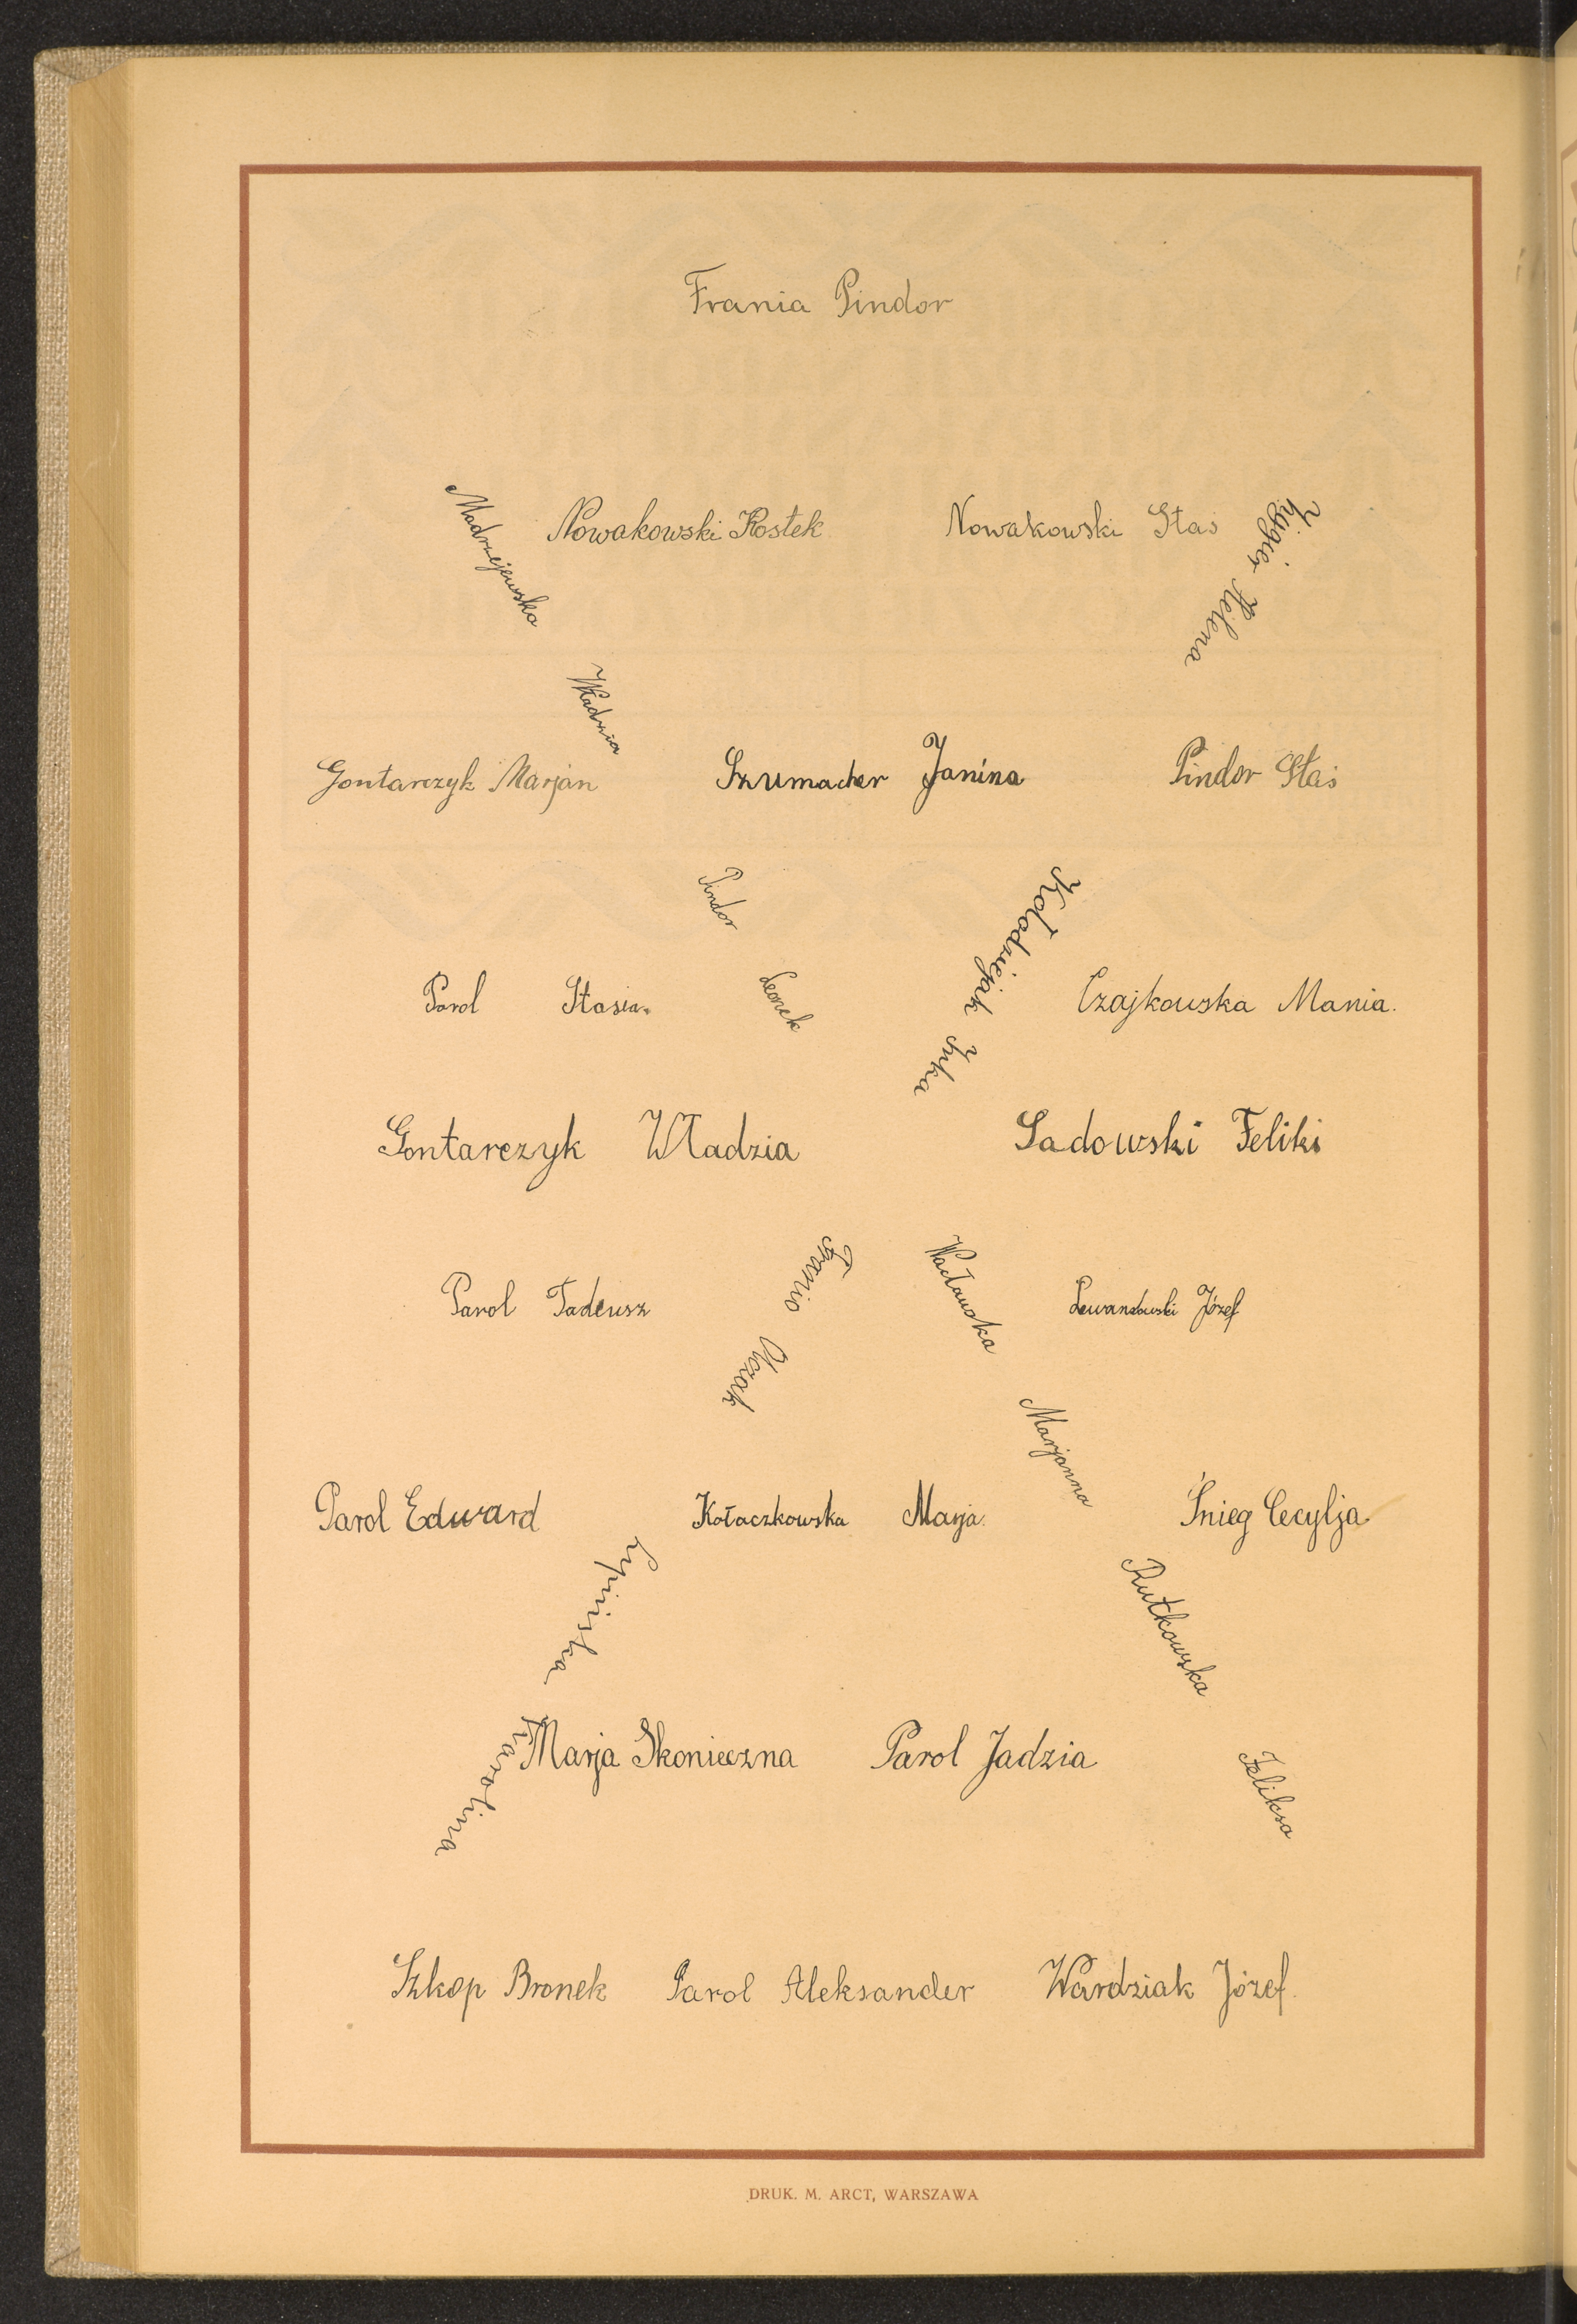 Frania Pindor
Nowakowski Kostek
Nowakowski Staś
Madrzejewska Władzia
Helena
Gontarczyk Marjan
Szumacher Janina
Pindor Staś
Pindor Leonek
Kołodziejak Irka
Parol Stasia.
Czajkowska Mania.
Gontarczyk Władzia
Sadowski Feliks
Franio Olczak
Wacławska Marjanna
Parol Tadeusz
Lewandowski Józef
Parol Edward
Kołaczkowska Marja.
Śnieg Cecylja
Lipińska Karolina
Rutkowska Feliksa
Marja Skonieczna
Parol Jadzia
Szkop Bronek
Parol Aleksander
Wardziak Józef.
DRUK. M. ARCT, WARSZAWA